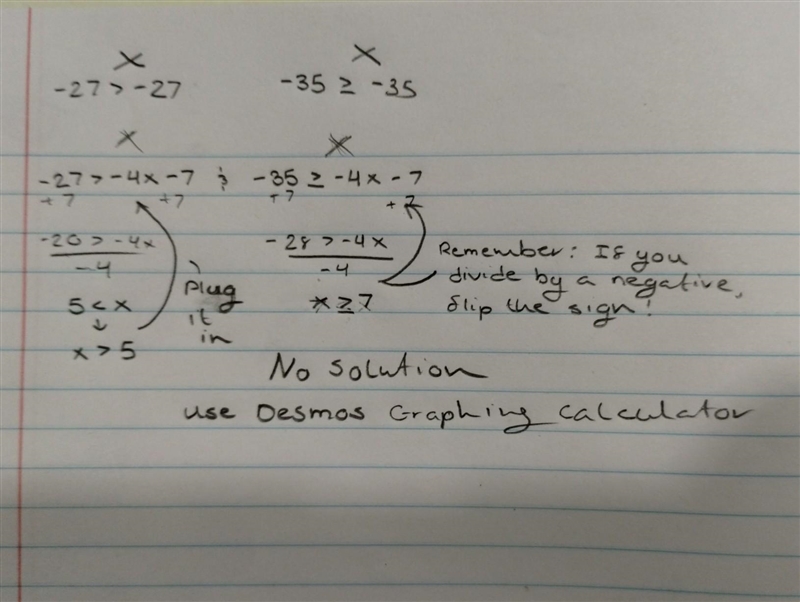 x x
-27 > -27 -35 ≥ -35
x x
-27 > -4x -7 ; -35 ≥ -4x - 7
+7 +7 +7 +7
-20 > -4x -28 > -4x Remember: If you
-4 -4 divide by a negative,
5 < x Plug x ≥ 7 flip the sign!
↓ it
x > 5 in
No solution
use Desmos Graphing Calculator